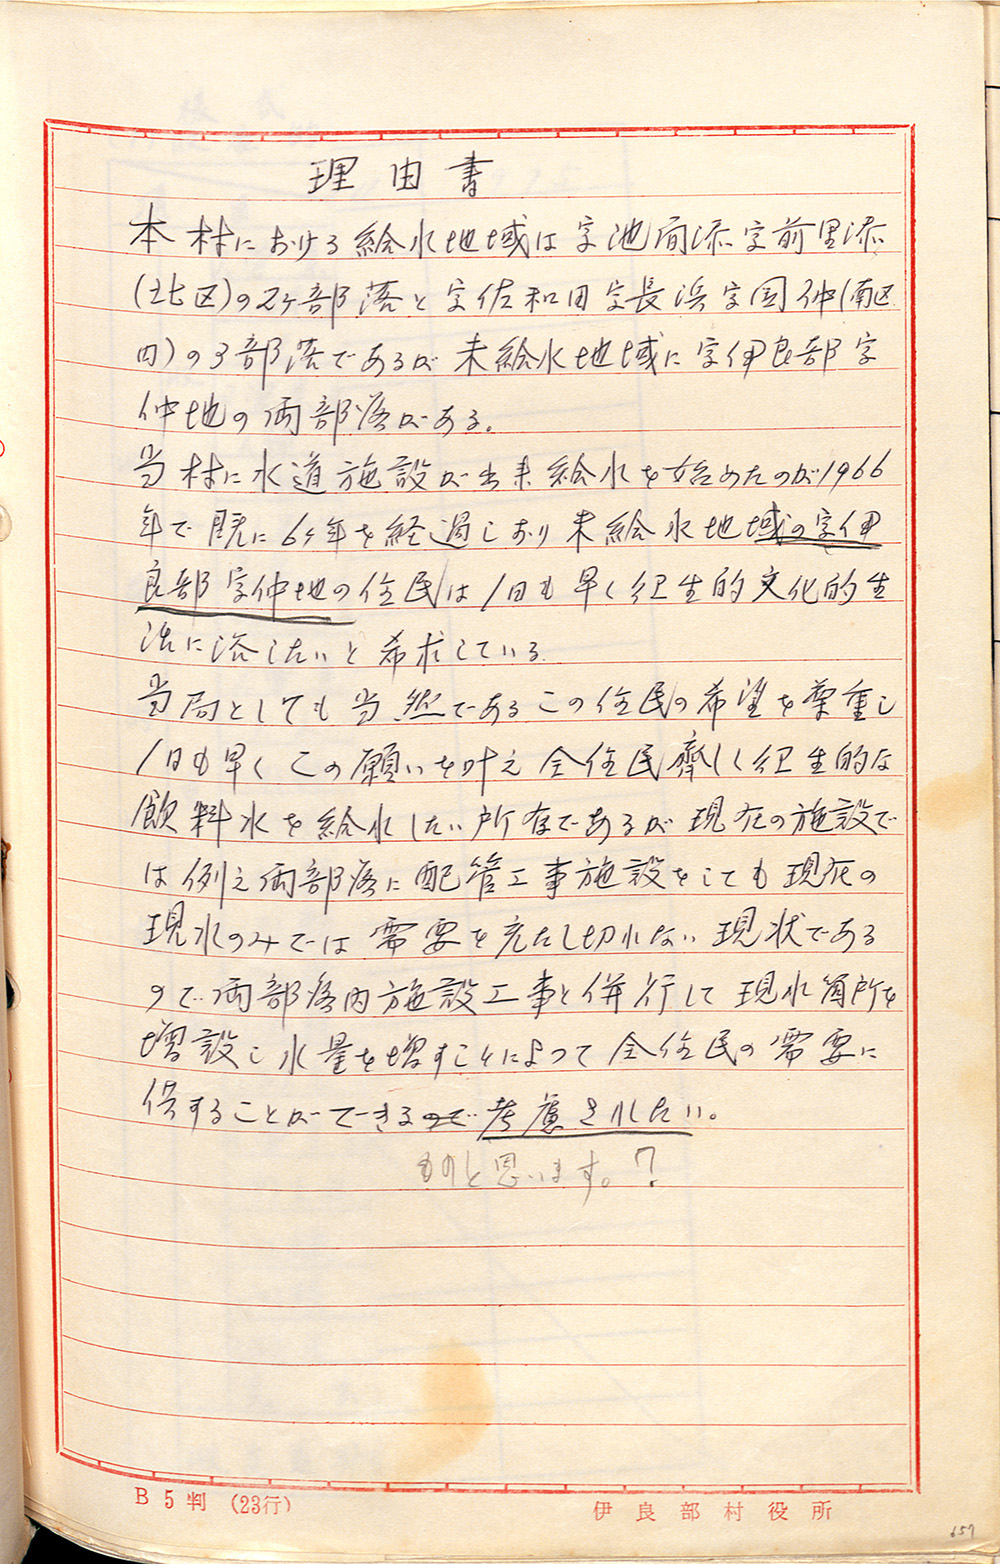 理由書
本村における給水地域は字池間添字前里添
(北区)の2ヶ部落と字佐和田字長浜字国仲(南区
内)の3部落であるが未給水地域に字伊良部字
仲地の両部落がある。
当村に水道施設が出来給水を始めたのが1966
年で既に6ヶ年を経過しおり未給水地域の字伊
良部字仲地の住民は1日も早く衛生的文化的生
活に浴したいと希求している
当局としても当然であるこの住民の希望を尊重し
1日も早くこの願いを叶え全住民齊しく衛生的な
飲料水を給水したい所存であるが現在の施設で
は例え両部落に配管工事施設をしても現在の
現水のみでは需要を充たし切れない現状である
ので両部落内施設工事と併行して現水箇所を
増設し水量を増すことによって全住民の需要に
供することができるので考慮されたい。
ものと思います。?
B5判 (23行)
伊良部村役所
657